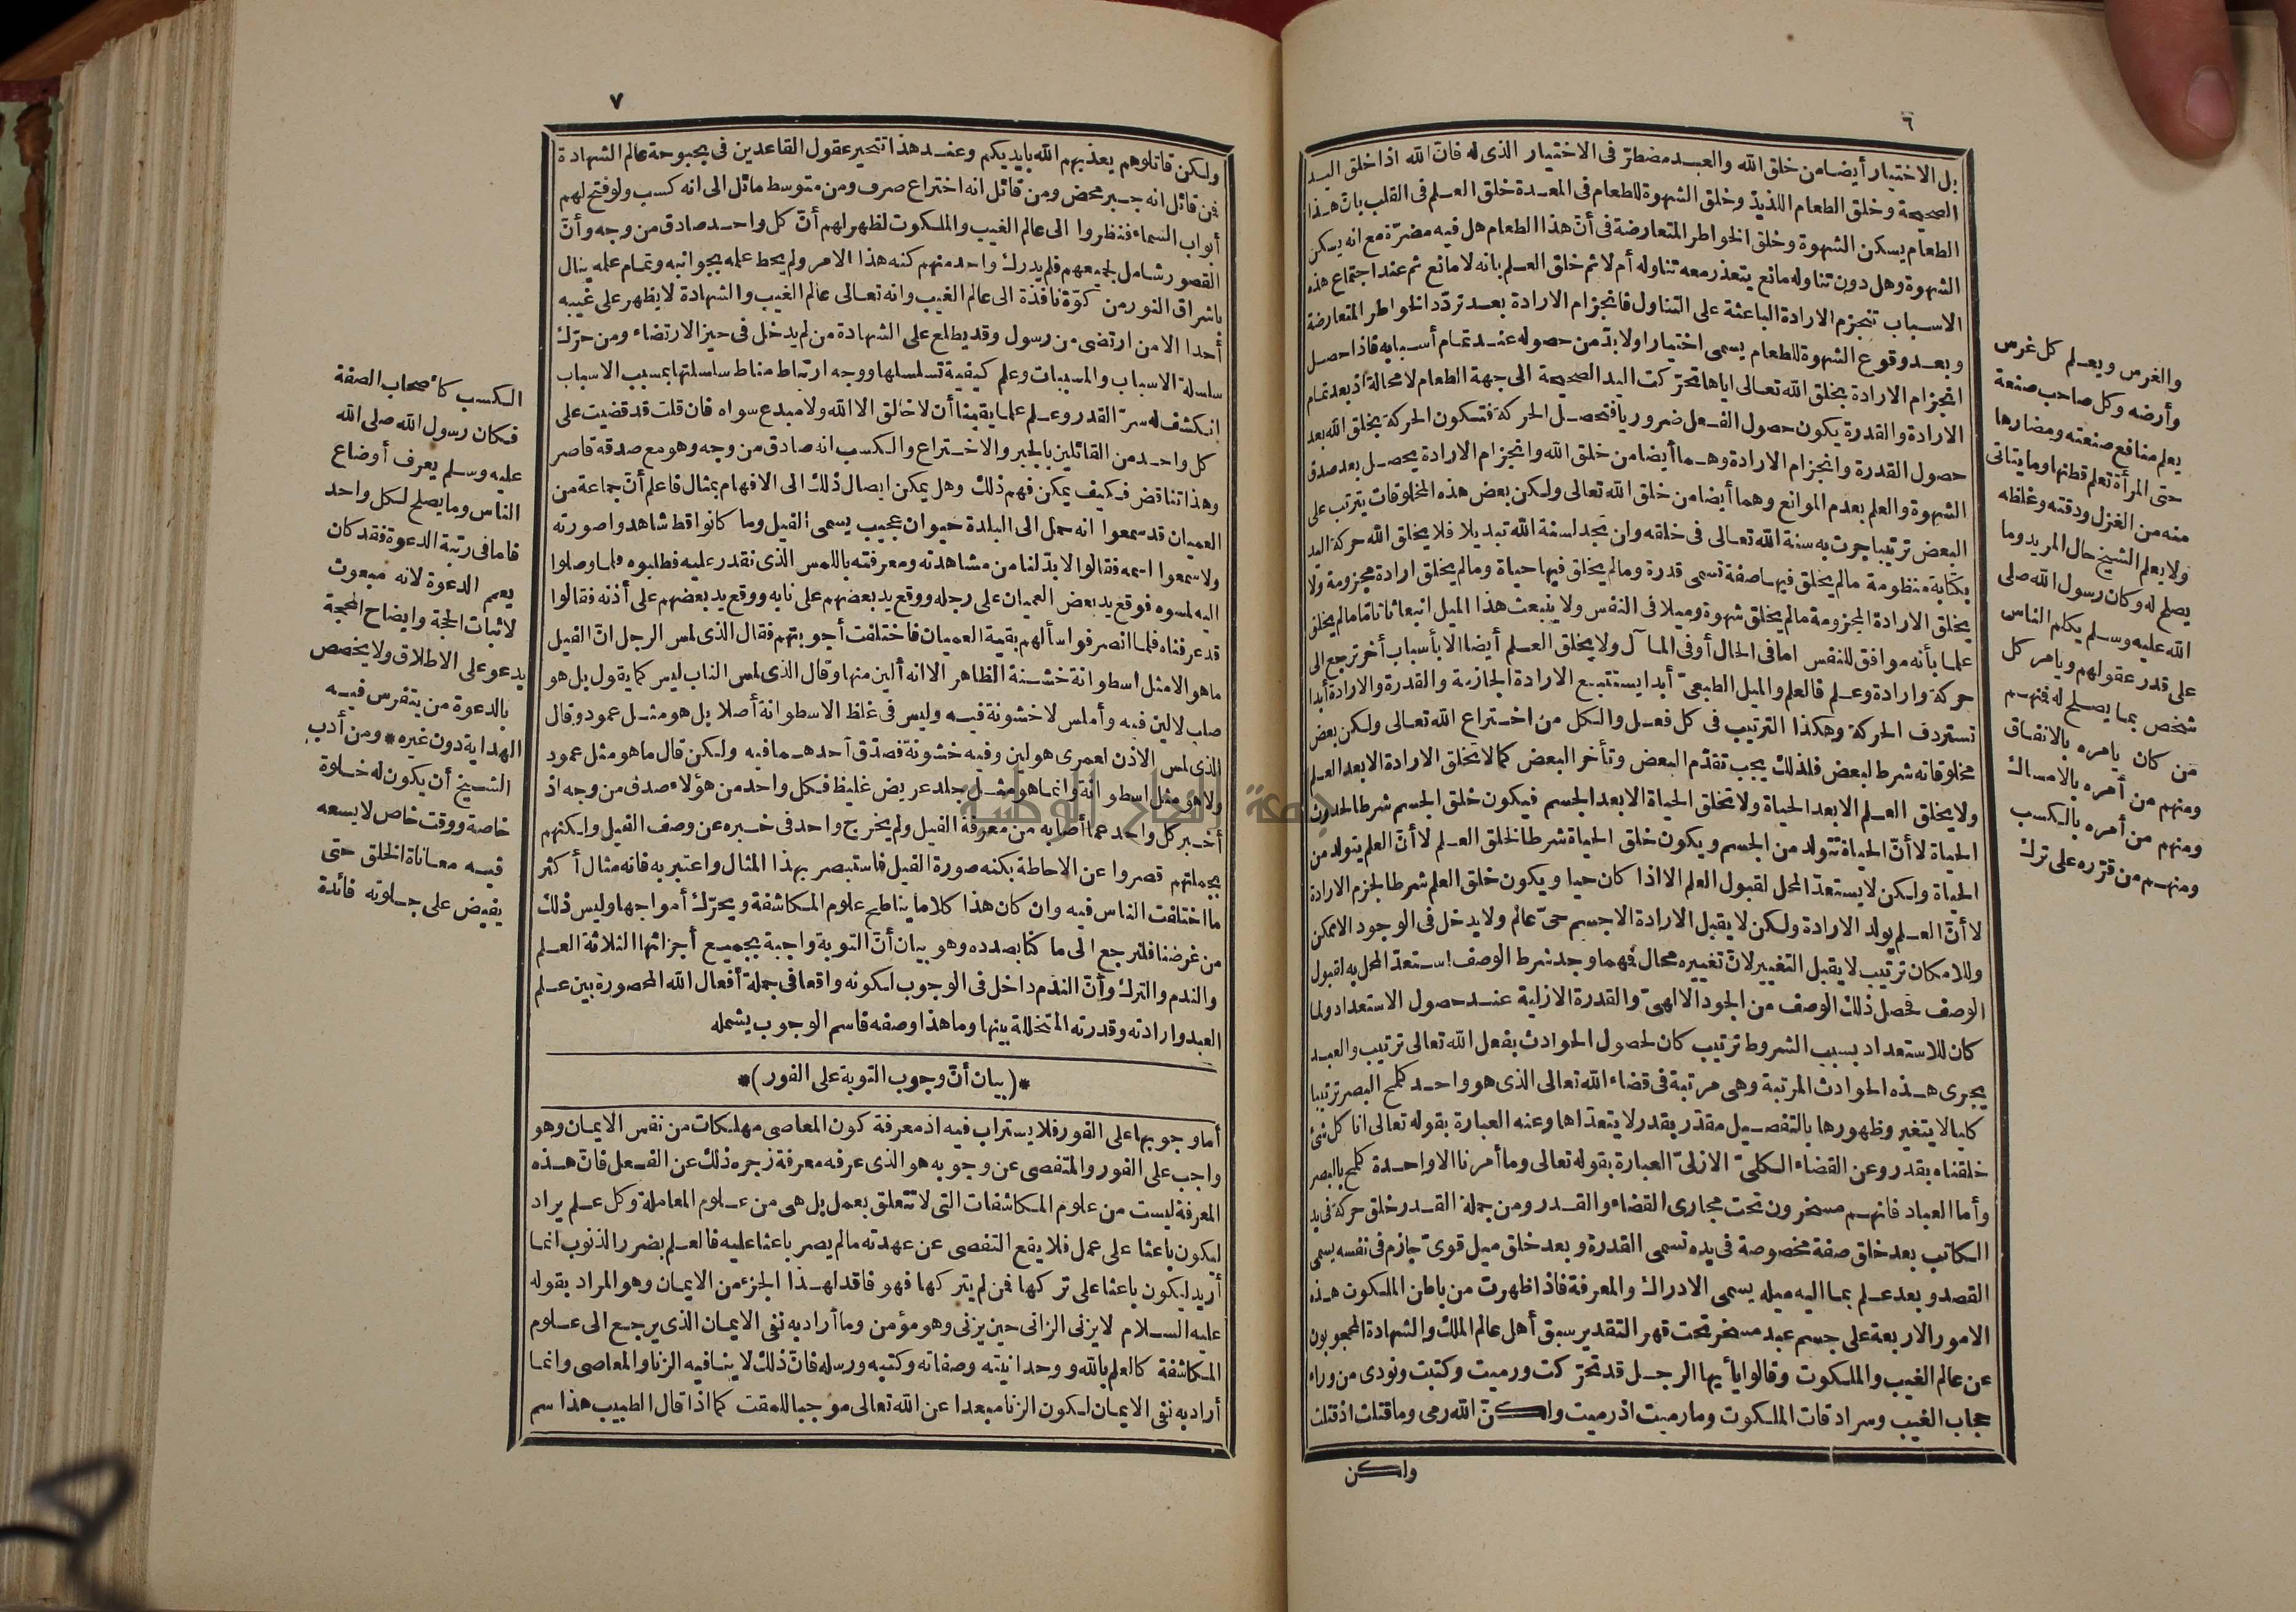 ٦
بل الاختيار أيضا من خلق الله والعبد مضطرّ فى الاختيار الذى له فانّ الله اذا خلق اليد
الصحيحة وخلق الطعام اللذيذ وخلق الشهوة للطعام فى المعدة خلق العلم فى القلب بانّ هذا
الطعام يسكن الشهوة وخلق الخواطر المتعارضة فى أنّ هذا الطعام هل فيه مضرّة مع انه يسكن
الشهوة وهل دون تناوله مانع يتعذر معه تناوله أم لا ثم خلق العلم بانه لا مانع ثم عند اجتماع هذه
الاسباب تنجزم الارادة الباعثة على التناول فانجزام الارادة بعد تردّد الخواطر المتعارضة
وبعد وقوع الشهوة للطعام يسمى اختيارا ولا بدّ من حصوله عند تمام أسبابه فاذا حصل
انجزام الارادة بخلق الله تعالى اياها تحرّكت اليد الصحيحة الى جهة الطعام لا محالة اذ بعد تمام
الارادة والقدرة يكون حصول الفعل ضروريا فتحصل الحركة فتكون الحركة بخلق الله بعد
حصول القدرة وانجزام الارادة وهما أيضا من خلق الله وانجزام الارادة يحصل بعد صدق
الشهوة والعلم بعدم الموانع وهما أيضا من خلق الله تعالى ولكن بعض هذه المخلوقات يترتب على
البعض ترتيبا جرت به سنة الله تعالى فى خلقه ولن تجد لسنة الله تبديلا فلا يخلق الله حركة اليد
بكتابة منظومة مالم يخلق فيها صفة تسمى قدرة ومالم يخلق فيها حياة ومالم يخلق ارادة مجزومة ولا
يخلق الارادة المجزومة مالم يخلق شهوة وميلا فى النفس ولا ينبعث هذا الميل انبعاثا تاما مالم يخلق
علما بأنه موافق للنفس اما فى الحال أو فى المآل ولا يخلق العلم أيضا الا بأسباب أخر ترجع الى
حركة وارادة وعلم فالعلم والميل الطبيعىّ أبدا يستتبع الارادة الجازمة والقدرة والارادة أبدا
تستردف الحركة وهكذا الترتيب فى كل فعل والكل من اختراع الله تعالى ولكن بعض
مخلوقاته شرط لبعض فلذلك يجب تقدّم البعض وتأخر البعض كما لا تخلق الارادة الا بعد العلم
ولا يخلق العلم الا بعد الحياة ولا تخلق الحياة الا بعد الجسم فيكون خلق الجسم شرطا لحدوث
الحياة لا أنّ الحياة تتولد من الجسم ويكون خلق الحياة شرطا لخلق العلم لا أنّ العلم يتولد من
الحياة ولكن لا يستعدّ المحل لقبول العلم الا اذا كان حيا ويكون خلق العلم شرطا لجزم الارادة
لا أنّ العلم يولد الارادة ولكن لا يقبل الارادة الا جسم حىّ عالم ولا يدخل فى الوجود الا ممكن
وللامكان ترتيب لا يقبل التغيير لانّ تغييره محال فمهما وجد شرط الوصف استعدّ المحل به لقبول
الوصف فحصل ذلك الوصف من الجود الالهىّ والقدرة الازلية عند حصول الاستعداد ولما
كان للاستعداد بسبب الشروط ترتيب كان لحصول الحوادث بفعل الله تعالى ترتيب والعبد
مجرى هذه الحوادث المرتبة وهى مرتبة فى قضاء الله تعالى الذى هو واحد كلمح البصر ترتيبا
كليا لا يتغير وظهورها بالتفصيل مقدّر بقدر لا يتعدّاها وعنه العبارة بقوله تعالى انا كل شئ
خلقناه بقدر وعن القضاء الكلىّ الازلىّ العبارة بقوله تعالى وما أمرنا الا واحدة كلمح بالبصر
وأما العباد فانهم مسخرون تحت مجارى القضاء والقدر ومن جملة القدر خلق حركة فى يد
الكاتب بعد خلق صفة مخصوصة فى يده تسمى القدرة وبعد خلق ميل قوىّ جازم فى نفسه يسمى
القصد وبعد علم بما اليه ميله يسمى الادراك والمعرفة فاذا ظهرت من باطن الملكوت هذه
الامور الاربعة على جسم عبد مسخر تحت قهر التقدير سبق أهل عالم الملك والشهادة المحجوبون
عن عالم الغيب والملكوت وقالوا يا أيها الرجل قد تحرّكت ورميت وكتبت ونودى من وراء
حجاب الغيب وسرادقات الملكوت وما رميت اذ رميت ولكنّ الله رمى وما قتلت اذ قتلت
ولكن
والغرس ويعلم كل غرس
وأرضه وكل صاحب صنعة
يعلم منافع صنعته ومضارها
حتى المرأة تعلم قطنها وما يتأتى
منه من الغزل ودقته وغلظه
ولا يعلم الشيخ حال المريد وما
يصلح له وكان رسول الله صلى
الله عليه وسلم يكلم الناس
على قدر عقولهم ويامر كل
شخص بما يصلح له فمنهم
من كان يامره بالانفاق
ومنهم من أمره بالامساك
ومنهم من أمره بالكسب
ومنهم من قرّره على ترك
٧
ولكن قاتلوهم يعذبهم الله بايديكم وعند هذا تتحير عقول القاعدين فى بحبوحة عالم الشهادة
فمن قائل انه جبر محض ومن قائل انه اختراع صرف ومن متوسط مائل الى انه كسب ولو فتح لهم
أبواب السماء فنظروا الى عالم الغيب والملكوت لظهر لهم أنّ كل واحد صادق من وجه وأنّ
القصور شامل لجميعهم فلم يدرك واحد منهم كنه هذا الامر ولم يحط علمه بجوانبه وتمام علمه ينال
باشراق النور من كوّة نافذة الى عالم الغيب وانه تعالى عالم الغيب والشهادة لا يظهر على غيبه
أحدا الا من ارتضى من رسول وقد يطلع على الشهادة من لم يدخل فى حيز الارتضاء ومن حرّك
سلسلة الاسباب والمسببات وعلم كيفية تسلسلها ووجه ارتباط مناط سلسلتها بمسبب الاسباب
انكشف له سرّ القدر وعلم علما يقينا أن لا خالق الا الله ولا مبدع سواه فان قلت قد قضيت على
كل واحد من القائلين بالجبر والاختراع والكسب انه صادق من وجه وهو مع صدقه قاصر
وهذا تناقض فكيف يمكن فهم ذلك وهل يمكن ايصال ذلك الى الافهام بمثال فاعلم أنّ جماعة من
العميان قد سمعوا انه حمل الى البلدة حيوان عجيب يسمى الفيل وما كانوا قط شاهدوا صورته
ولا سمعوا اسمه فقالوا لا بدّ لنا من مشاهدته ومعرفته باللمس الذى نقدر عليه فطلبوه فلما وصلوا
اليه لمسوه فوقع يد بعض العميان على رجله ووقع يد بعضهم على نابه ووقع يد بعضهم على أذنه فقالوا
قد عرفناه فلما انصرفوا سألهم بقية العميان فاختلفت أجوبتهم فقال الذى لمس الرجل انّ الفيل
ما هو الا مثل اسطوانة خشنة الظاهر الا انه ألين منها وقال الذى لمس الناب ليس كما يقول بل هو
صلب لا لين فيه وأملس لا خشونة فيه وليس فى غلظ الاسطوانة أصلا بل هو مثل عمود وقال
الذى لمس الاذن لعمرى هو لين وفيه خشونة فصدّق أحدهما فيه ولكن قال ما هو مثل عمود
ولا هو مثل اسطوانة وانما هو مثل جلد عريض غليظ فكل واحد من هؤلاء صدق من وجه اذ
أخبر كل واحد عما أصابه من معرفة الفيل ولم يخرج واحد فى خبره عن وصف الفيل ولكنهم
بجملتهم قصروا عن الاحاطة بكنه صورة الفيل فاستبصر بهذا المثال واعتبر به فانه مثال أكثر
ما اختلفت الناس فيه وان كان هذا كلاما يناطح علوم المكاشفة ويحرّك أمواجها وليس ذلك
من غرضنا فلنرجع الى ما كنا بصدده وهو بيان أنّ التوبة واجبة بجميع أجزائها الثلاثة العلم
والندم والترك وأنّ الندم داخل فى الوجوب لكونه واقعا فى جملة أفعال الله المحصورة بين علم
العبد وارادته وقدرته المتخللة بينها وما هذا وصفه فاسم الوجوب يشمله
*(بيان أنّ وجوب التوبة على الفور)*
أما وجوبها على الفور فلا يستراب فيه اذ معرفة كون المعاصى مهلكات من نفس الايمان وهو
واجب على الفور والمتفصى عن وجوبه هو الذى عرفه معرفة زجره ذلك عن الفعل فانّ هذه
المعرفة ليست من علوم المكاشفات التى لا تتعلق بعمل بل هى من علوم المعاملة وكل علم يراد
ليكون باعثا على عمل فلا يقع التفصى عن عهدته مالم يصر باعثا عليه فالعلم بضرر الذنوب انما
أريد ليكون باعثا على تركها فمن لم يتركها فهو فاقد لهذا الجزء من الايمان وهو المراد بقوله
عليه السلام لا يزنى الزانى حين يزنى وهو مؤمن وما أراد به نفى الايمان الذى يرجع الى علوم
المكاشفة كالعلم بالله ووحدانيته وصفاته وكتبه ورسله فانّ ذلك لا ينافيه الزنا والمعاصى وانما
أراد به نفى الايمان لكون الزنا مبعدا عن الله تعالى موجبا للمقت كما اذا قال الطبيب هذا سم
الكسب كأصحاب الصفة
فكان رسول الله صلى الله
عليه وسلم يعرف أوضاع
الناس وما يصلح لكل واحد
فاما فى رتبة الدعوة فقد كان
يعمم الدعوة لانه مبعوث
لاثبات الحجة وايضاح المحجة
يدعو على الاطلاق ولا يخصص
بالدعوة من يتفرس فيه
الهداية دون غيره * ومن أدب
الشيخ أن يكون له خلوة
خاصة ووقت خاص لا يسعه
فيه معاناة الخلق حتى
يفيض على جلوته فائدة
جامعة النجاح الوطنية